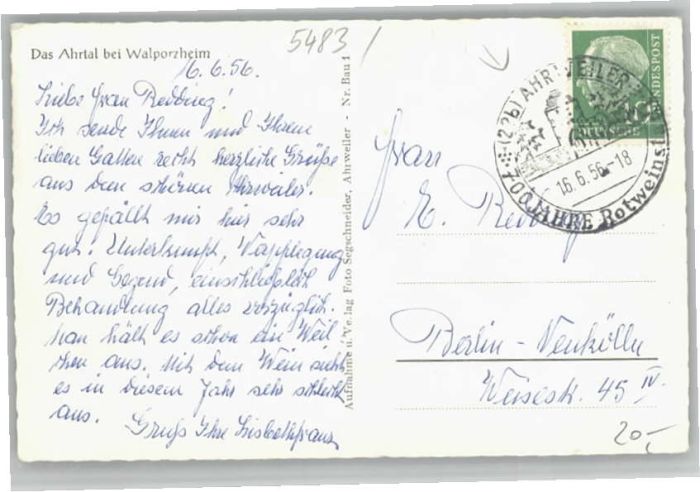 Das Ahrtal bei Walporzheim
5483 /
16.6.56.
Liebe Frau Redding!
Ich sende Ihnen und Ihrem
lieben Gatten recht herzliche Grüße
aus dem schönen Ahrweiler.
Es gefällt mir hier sehr
gut. Unterkunft, Verpflegung
und Gegend, einschließlich
Behandlung alles vorzüglich.
Man hält es schon ein Weil
chen aus. Mit dem Wein sieht
es in diesem Jahr sehr schlecht
aus.
Gruß Ihre
Aufnahme u. Verlag Foto Segschneider, Ahrweiler - Nr. Bau 1
BUNDESPOST
(22b) AHRWEILER
16.6.56-18
700 JAHRE Rotweinst
Frau
E. Redding
Berlin-Neukölln
Weisestr. 45 IV.
20,-